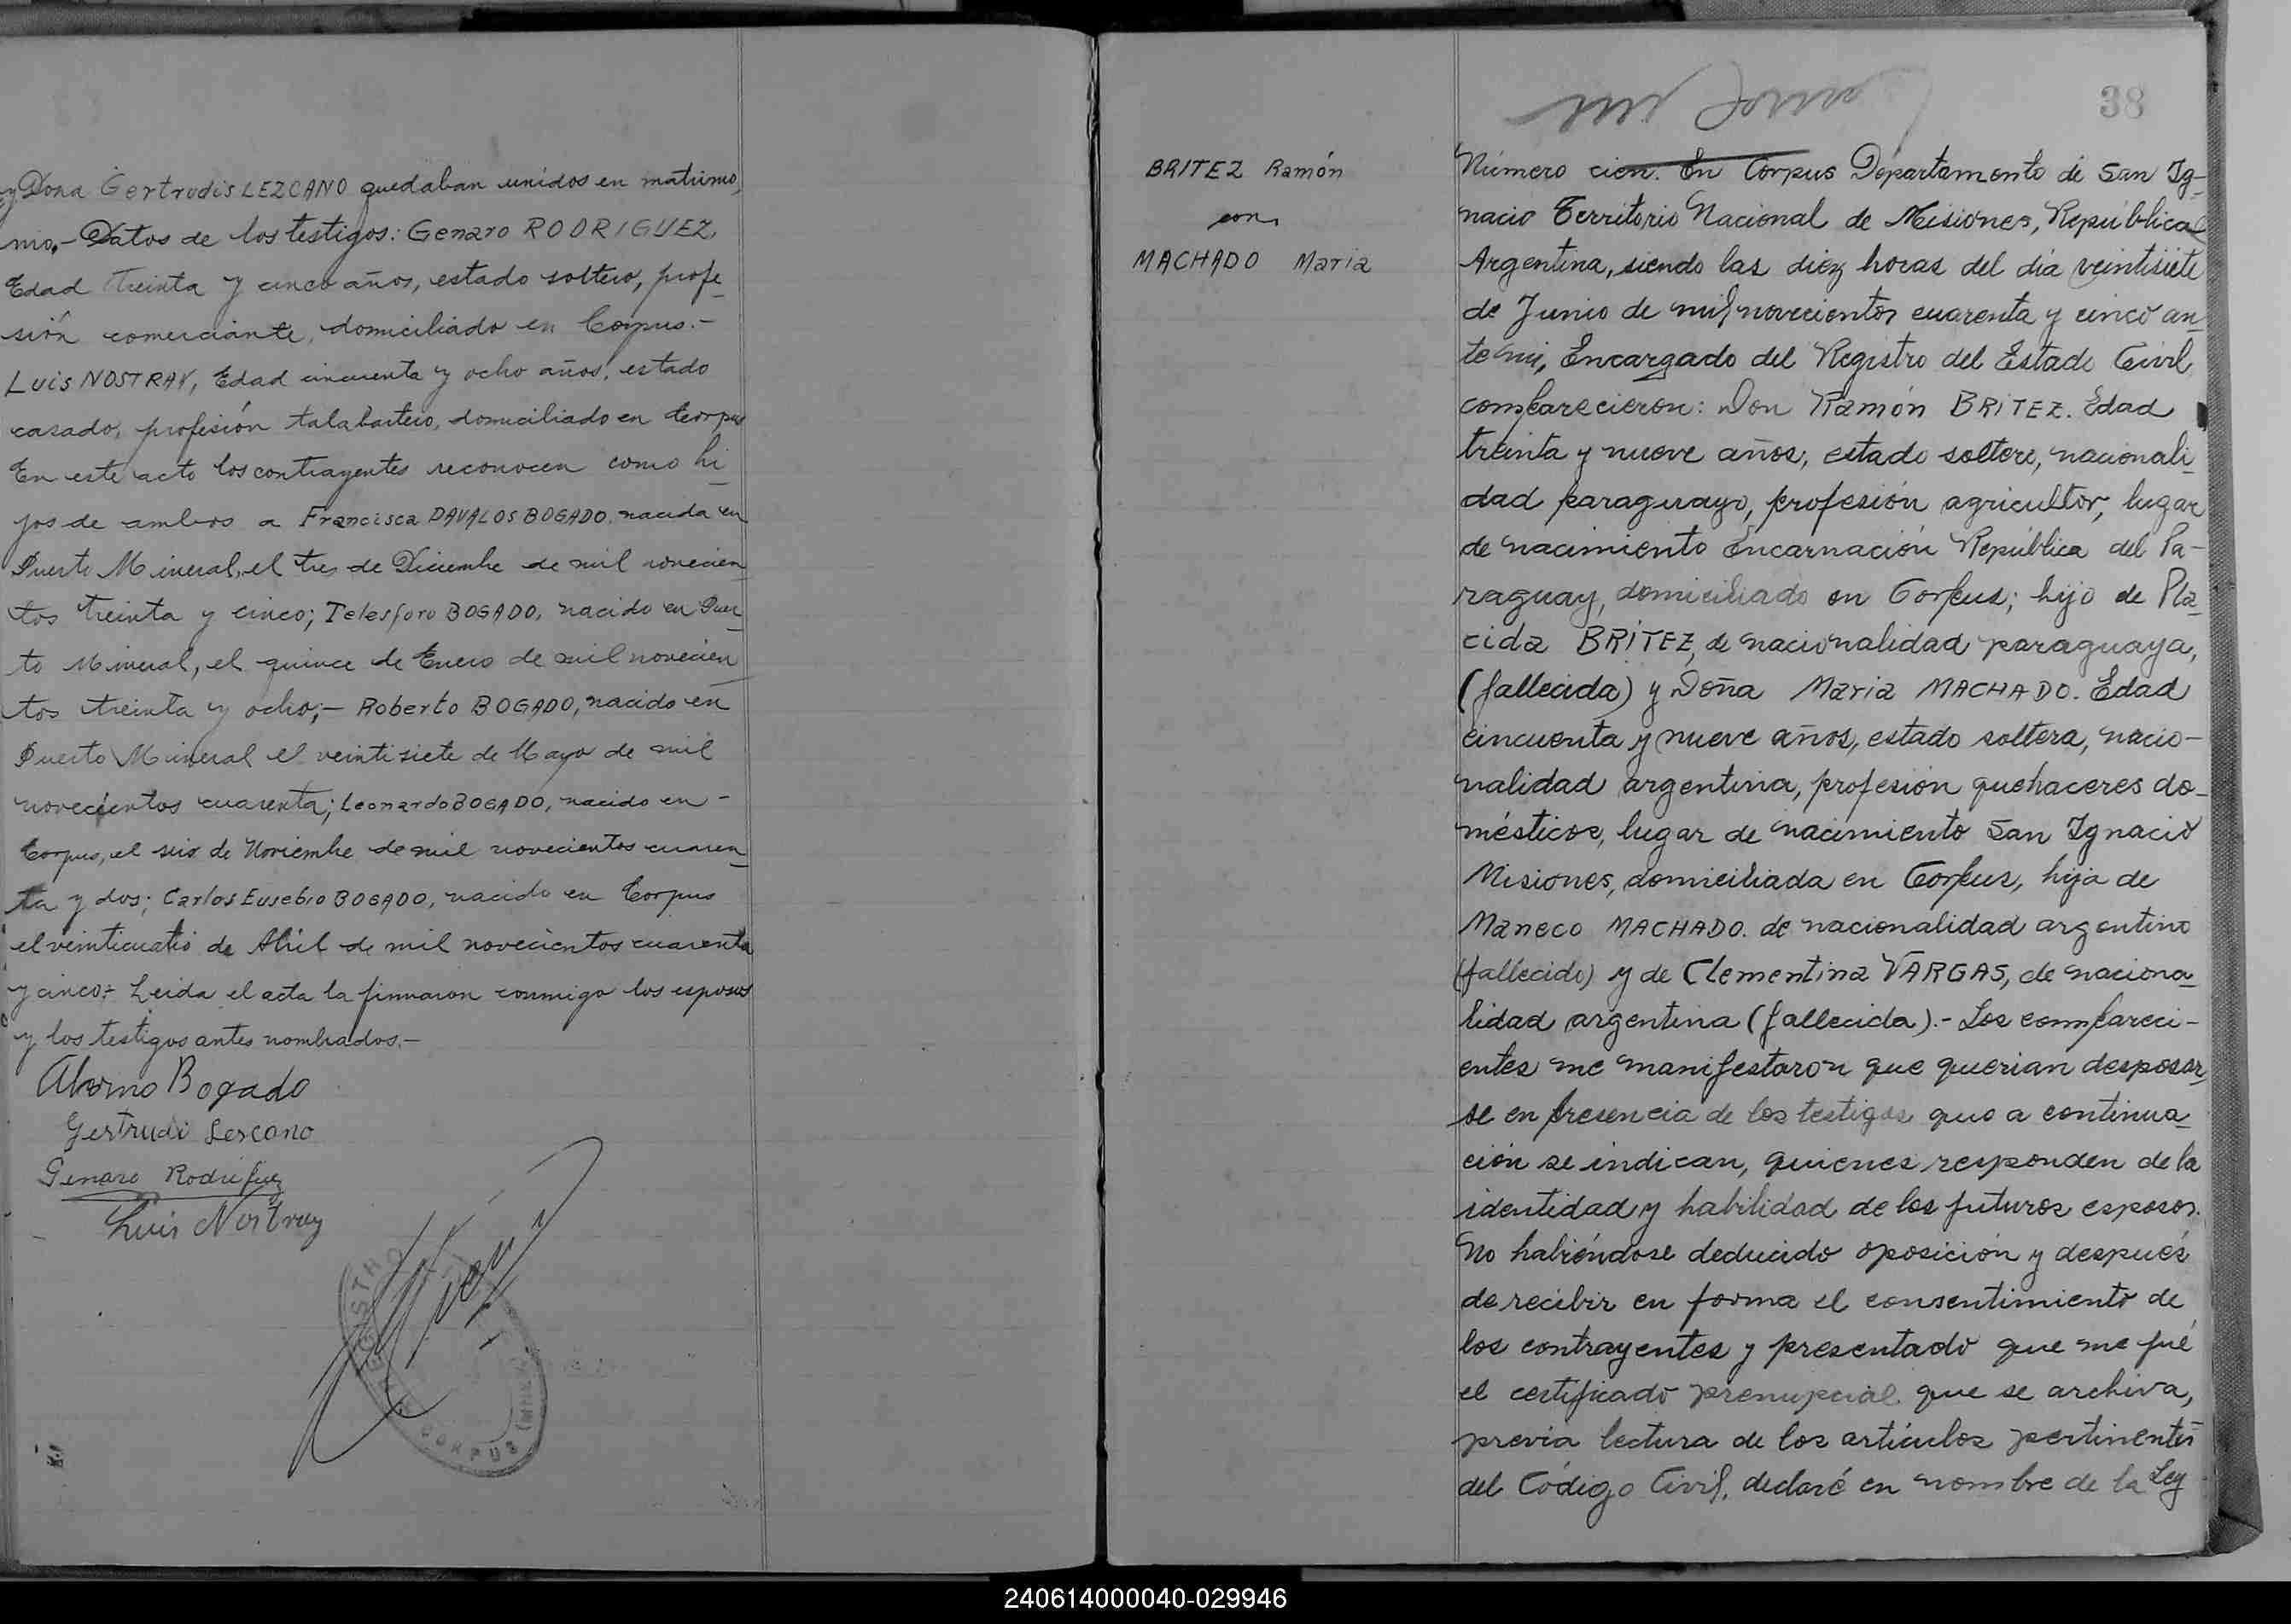 y Doña Gertrudis LEZCANO quedaban unidos en matrimo
nio.- Datos de los testigos: Genaro RODRIGUEZ,
Edad treinta y cinco años, estado soltero, profe
sión comerciante, domiciliado en Corpus.-
Luis NOSTRAY, Edad cincuenta y ocho años, estado
casado, profesión talabartero, domiciliado en Corpus
En este acto los contrayentes reconocen como hi
jos de ambos a Francisca DAVALOS BOGADO, nacida en
Puerto Mineral, el tres de Diciembre de mil novecien
tos treinta y cinco; Telesforo BOGADO, nacido en Puer
to Mineral, el quince de Enero de mil novecien
tos treinta y ocho;- Roberto BOGADO, nacido en
Puerto Mineral el veintisiete de Mayo de mil
novecientos cuarenta; Leonardo BOGADO, nacido en -
Corpus, el seis de Noviembre de mil novecientos cuaren
ta y dos; Carlos Eusebio BOGADO, nacido en Corpus
el veinticuatro de Abril de mil novecientos cuarenta
y cinco.- Leida el acta la firmaron conmigo los esposos
y los testigos antes nombrados.-
Bogado
Gertrudi Lescano
Genaro Rodriguez
Luis Nostray
REGISTRO
CORPUS
38
BRITEZ Ramón
con
MACHADO Maria
Número cien. En Corpus Departamento de San Ig-
nacio Territorio Nacional de Misiones, República
Argentina, siendo las diez horas del dia veintisiete
de Junio de mil novecientos cuarenta y cinco an
te mi, Encargado del Registro del Estado Civil
comparecieron: Don Ramón BRITEZ. Edad
treinta y nueve años, estado soltero, nacionali
dad paraguayo, profesión agricultor, lugar
de nacimiento Encarnación República del Pa-
raguay, domiciliado en Corpus; hijo de Pla
cida BRITEZ, de nacionalidad paraguaya,
(fallecida) y Doña Maria MACHADO. Edad
cincuenta y nueve años, estado soltera, nacio-
nalidad argentina, profesión quehaceres do-
mésticos, lugar de nacimiento San Ignacio
Misiones, domiciliada en Corpus, hija de
Maneco MACHADO. de nacionalidad argentino
(fallecido) y de Clementina VARGAS, de naciona
lidad argentina (fallecida).- Los compareci-
entes me manifestaron que querian desposar
se en presencia de los testigos que a continua
ción se indican, quienes responden de la
identidad y habilidad de los futuros esposos.
No habiéndose deducido oposición y después
de recibir en forma el consentimiento de
los contrayentes y presentado que me fué
el certificado prenupcial que se archiva,
previa lectura de los artículos pertinentes
del Código Civil, declaré en nombre de la Ley
240614000040-029946